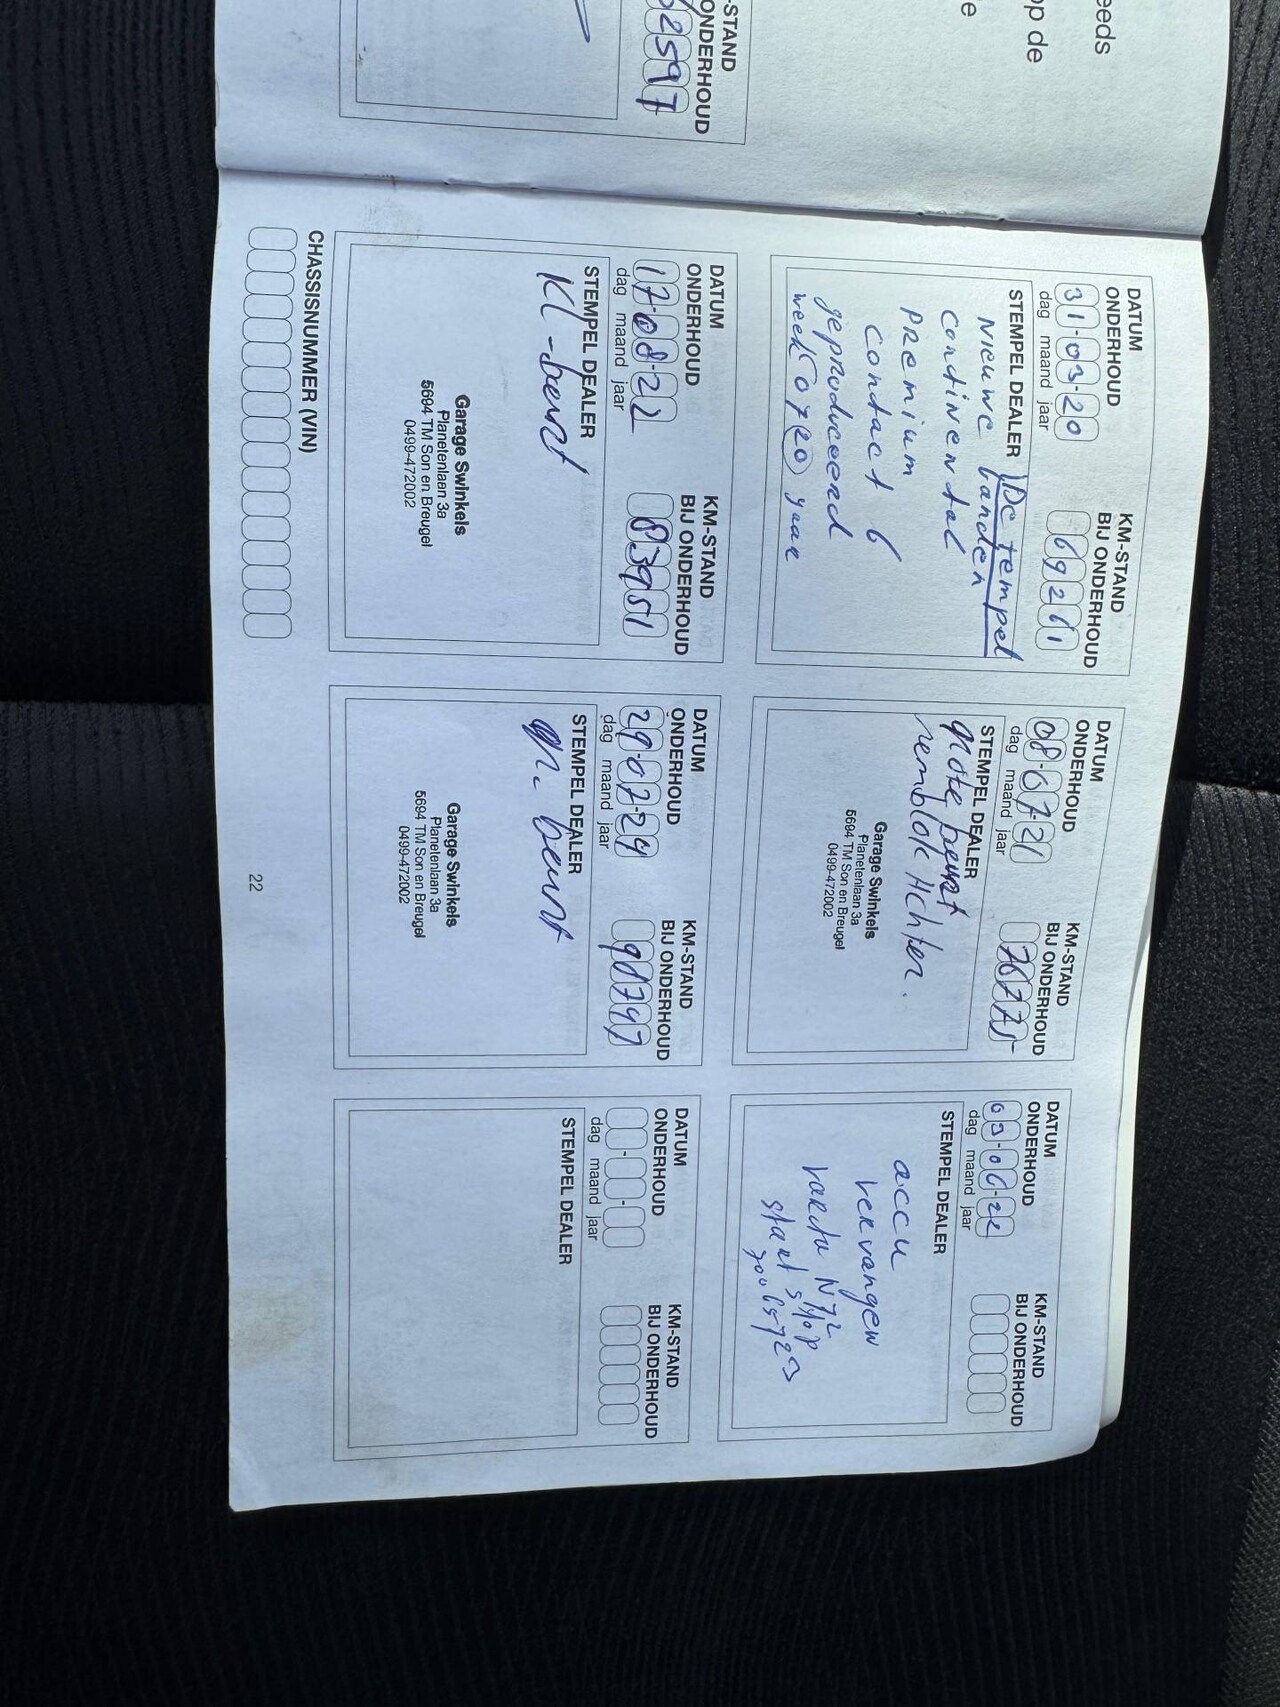 eeds
op de
e
-STAND
ONDERHOUD
2597
DATUM
ONDERHOUD
KM-STAND
BIJ ONDERHOUD
31-03-20
69261
dag maand jaar
STEMPEL DEALER
De tempel
Nieuwe banden
Continental
Premium
Contact 6
geproduceerd
week 07 20 jaar
DATUM
ONDERHOUD
KM-STAND
BIJ ONDERHOUD
08-07-21
76775
dag maand jaar
STEMPEL DEALER
grote beurt
remblok Achter.
Garage Swinkels
Planetenlaan 3a
5694 TM Son en Breugel
0499-472002
DATUM
ONDERHOUD
KM-STAND
BIJ ONDERHOUD
03-06-22
dag maand jaar
STEMPEL DEALER
accu
vervangen
varta N72
start stop
DATUM
ONDERHOUD
KM-STAND
BIJ ONDERHOUD
17-08-22
83951
dag maand jaar
STEMPEL DEALER
Kl-beurt
Garage Swinkels
Planetenlaan 3a
5694 TM Son en Breugel
0499-472002
DATUM
ONDERHOUD
KM-STAND
BIJ ONDERHOUD
29-07-24
98747
dag maand jaar
STEMPEL DEALER
gr. beurt
Garage Swinkels
Planetenlaan 3a
5694 TM Son en Breugel
0499-472002
DATUM
ONDERHOUD
KM-STAND
BIJ ONDERHOUD
dag maand jaar
STEMPEL DEALER
CHASSISNUMMER (VIN)
22